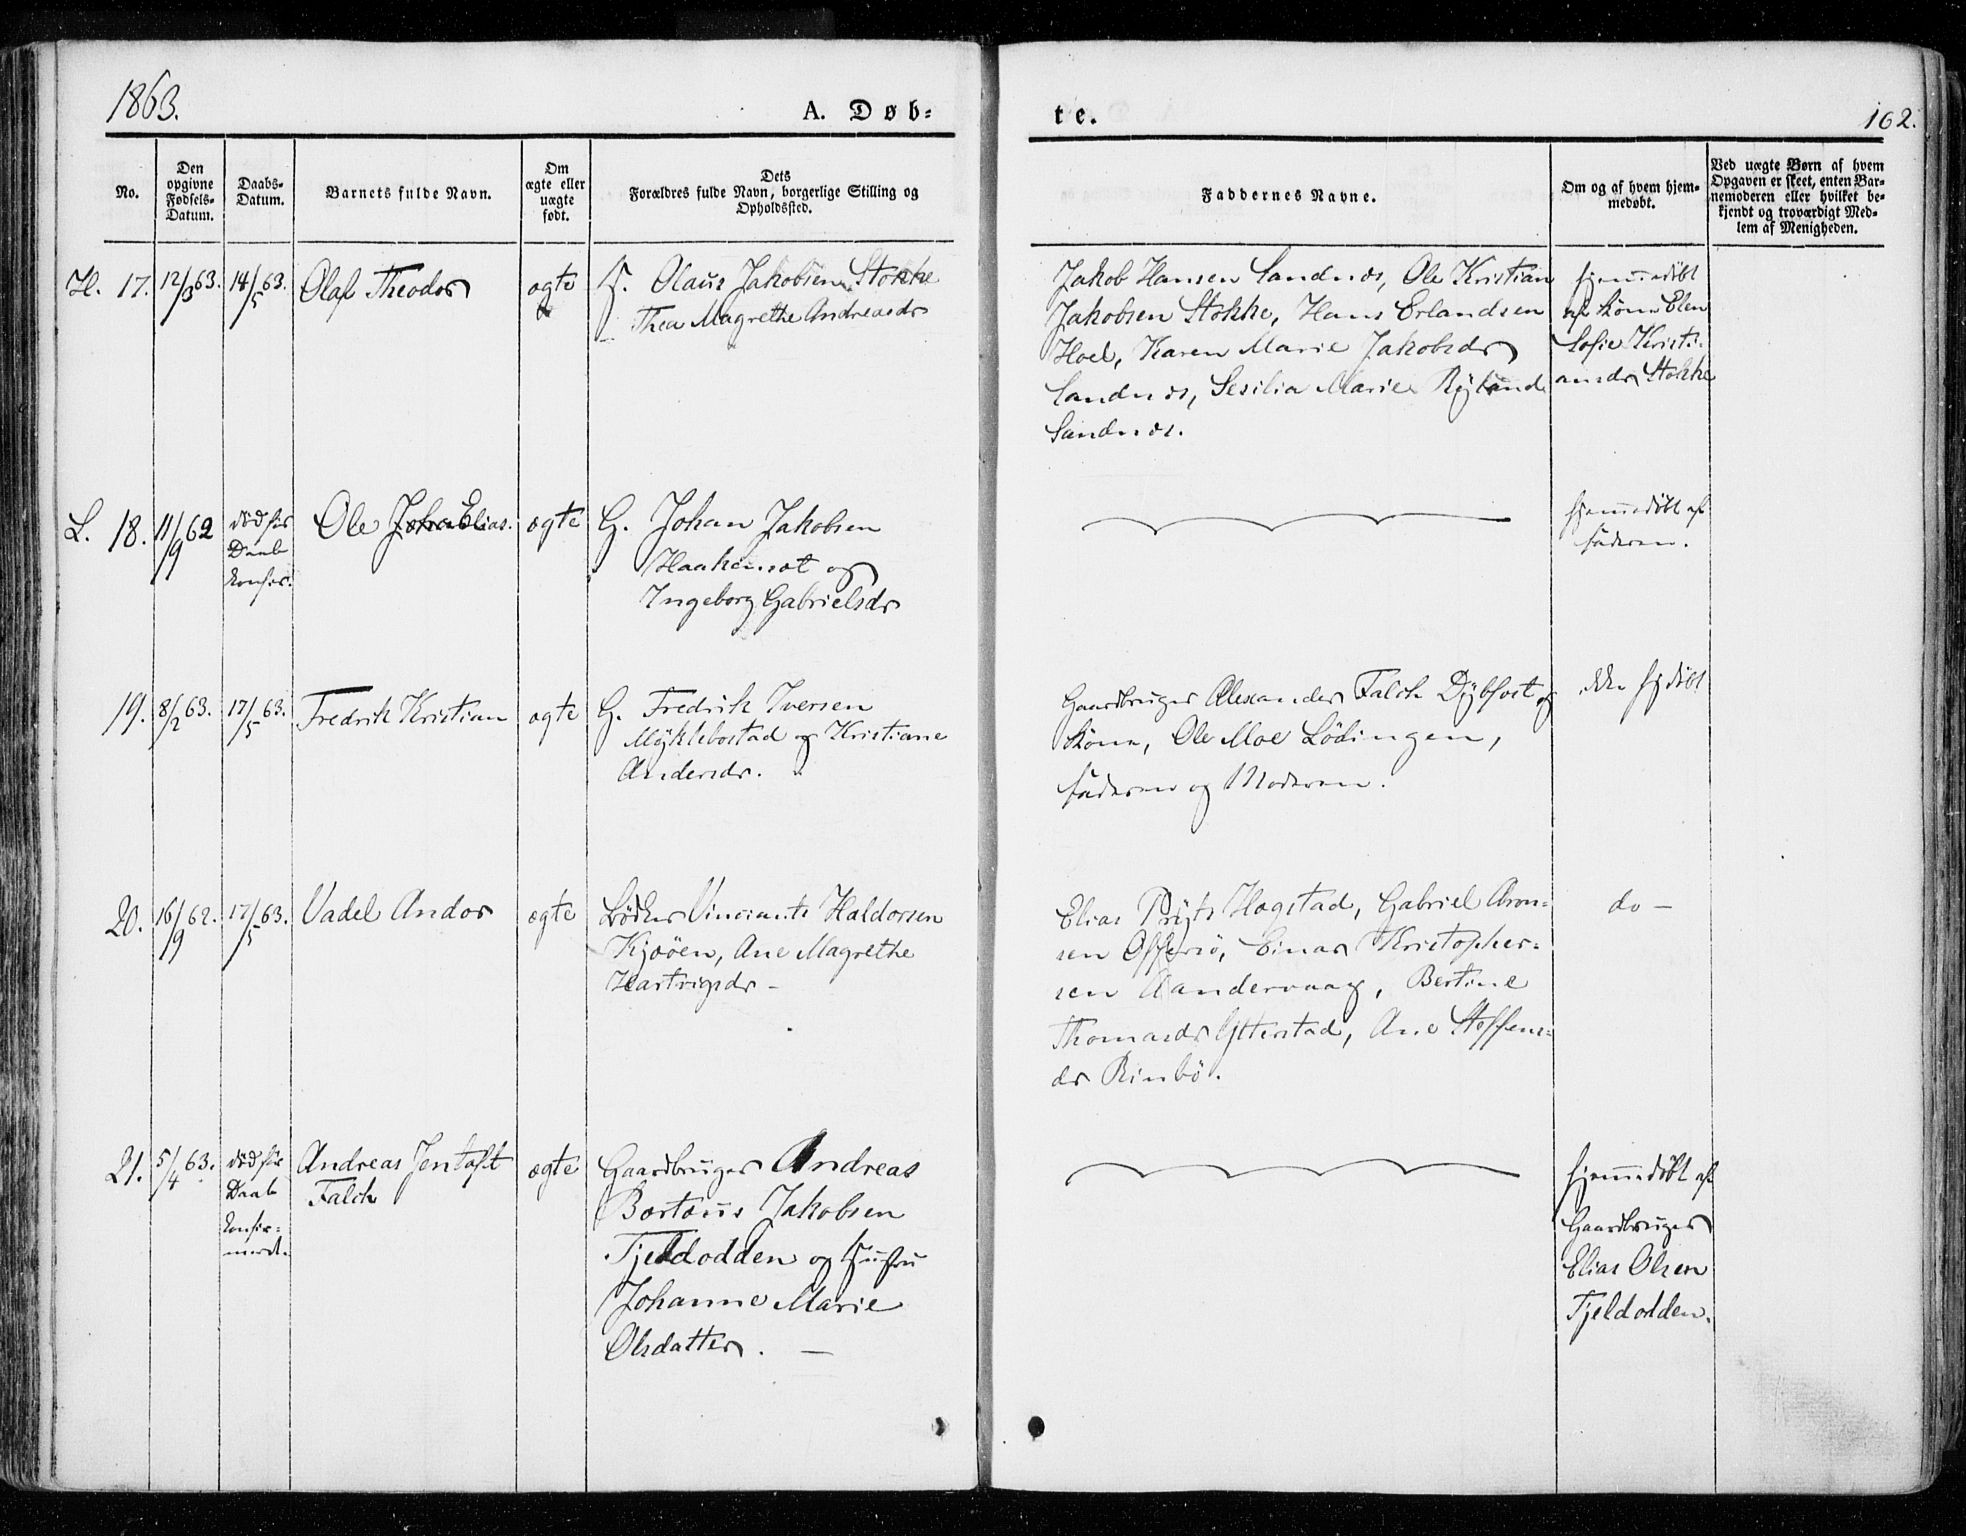 1863.
A. Døb-
te.
162.
No.
Den opgivne Fødsels-Datum.
Daabs-Datum.
Barnets fulde Navn.
Om ægte eller uægte født.
Dets Forældres fulde Navn, borgerlige Stilling og Opholdssted.
Faddernes Navne.
Om og af hvem hjem-medøbt.
Ved uægte Børn af hvem Opgaven er skeet, enten Bar-nemoderen eller hvilket be-kjendt og troværdigt Med-lem af Menigheden.
H. 17. 12/3 63. 14/5 63. Olaf Theodor ægte
Olaus Jakobsen Stokke
Thea Magrethe Andreasdr
Jakob Hansen Sandnæs, Ole Kristian
Jakobsen Stokke, Hans Erlandsen
Hoel, Karen Marie Jakobsdr
Sandnæs, Sesilia Marie
Sandnæs.
hjemmedøbt
af Kone Elen
Sofie Kristi-
ansdr Stokke
L. 18. 11/9 62 død før
Daab
konfir.
Ole Elias. ægte
G. Johan Jakobsen
og
Ingeborg Gabrielsdr
hjemmedøbt af
Faderen.
19. 8/2 63. 17/5 63. Fredrik Kristian ægte
G. Fredrik Iversen
Myklebostad og Kristiane
Andersdr.
Gaardbruger Alexander Falch Dybfest og
Kone, Ole Moe Lödingen,
Faderen og Moderen.
ikke hjdøbt
20. 16/9 62. 17/5 63. Vadel Andor ægte
Bödker Vinsients Haldorsen
Kjööen, Ane Magrethe
Hartvigsdr -
Elias Prÿtz Hogstad, Gabriel Aron-
sen Offersö, Einar Kristopher-
sen Aandervaag, Bertine
Thomasdr Ytterstad, Ane Steffens-
dr Rinbö.
do -
21. 5/4 63. død før
Daab
konfir-
meret.
Andreas Jentoft
Falch
ægte
Gaardbruger Andreas
Bertæus Jakobsen
Fjeldodden og Hustru
Johanne Marie
Olsdatter. -
hjemmedøbt af
Gaardbruger
Elias Olsen
Fjeldodden.